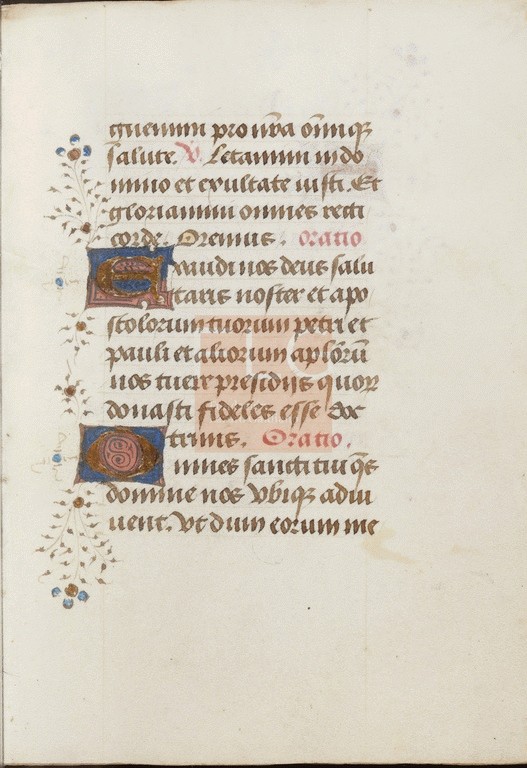 gnemini pro nr̄a om̄iq̄
salute. V. Letamini in do
mino et exultate iusti. Et
gloriamini omnes recti
corde. Oremus. oratio
Exaudi nos deus salu
taris noster et apo
stolorum tuorum petri et
pauli et aliorum apl̄orū
nos tuere presidijs quoꝝ
donasti fideles esse doc
trinis. Oratio.
Omnes sancti tui q̄s
domine nos vbiq̄ adiu
uent. vt dum eorum me